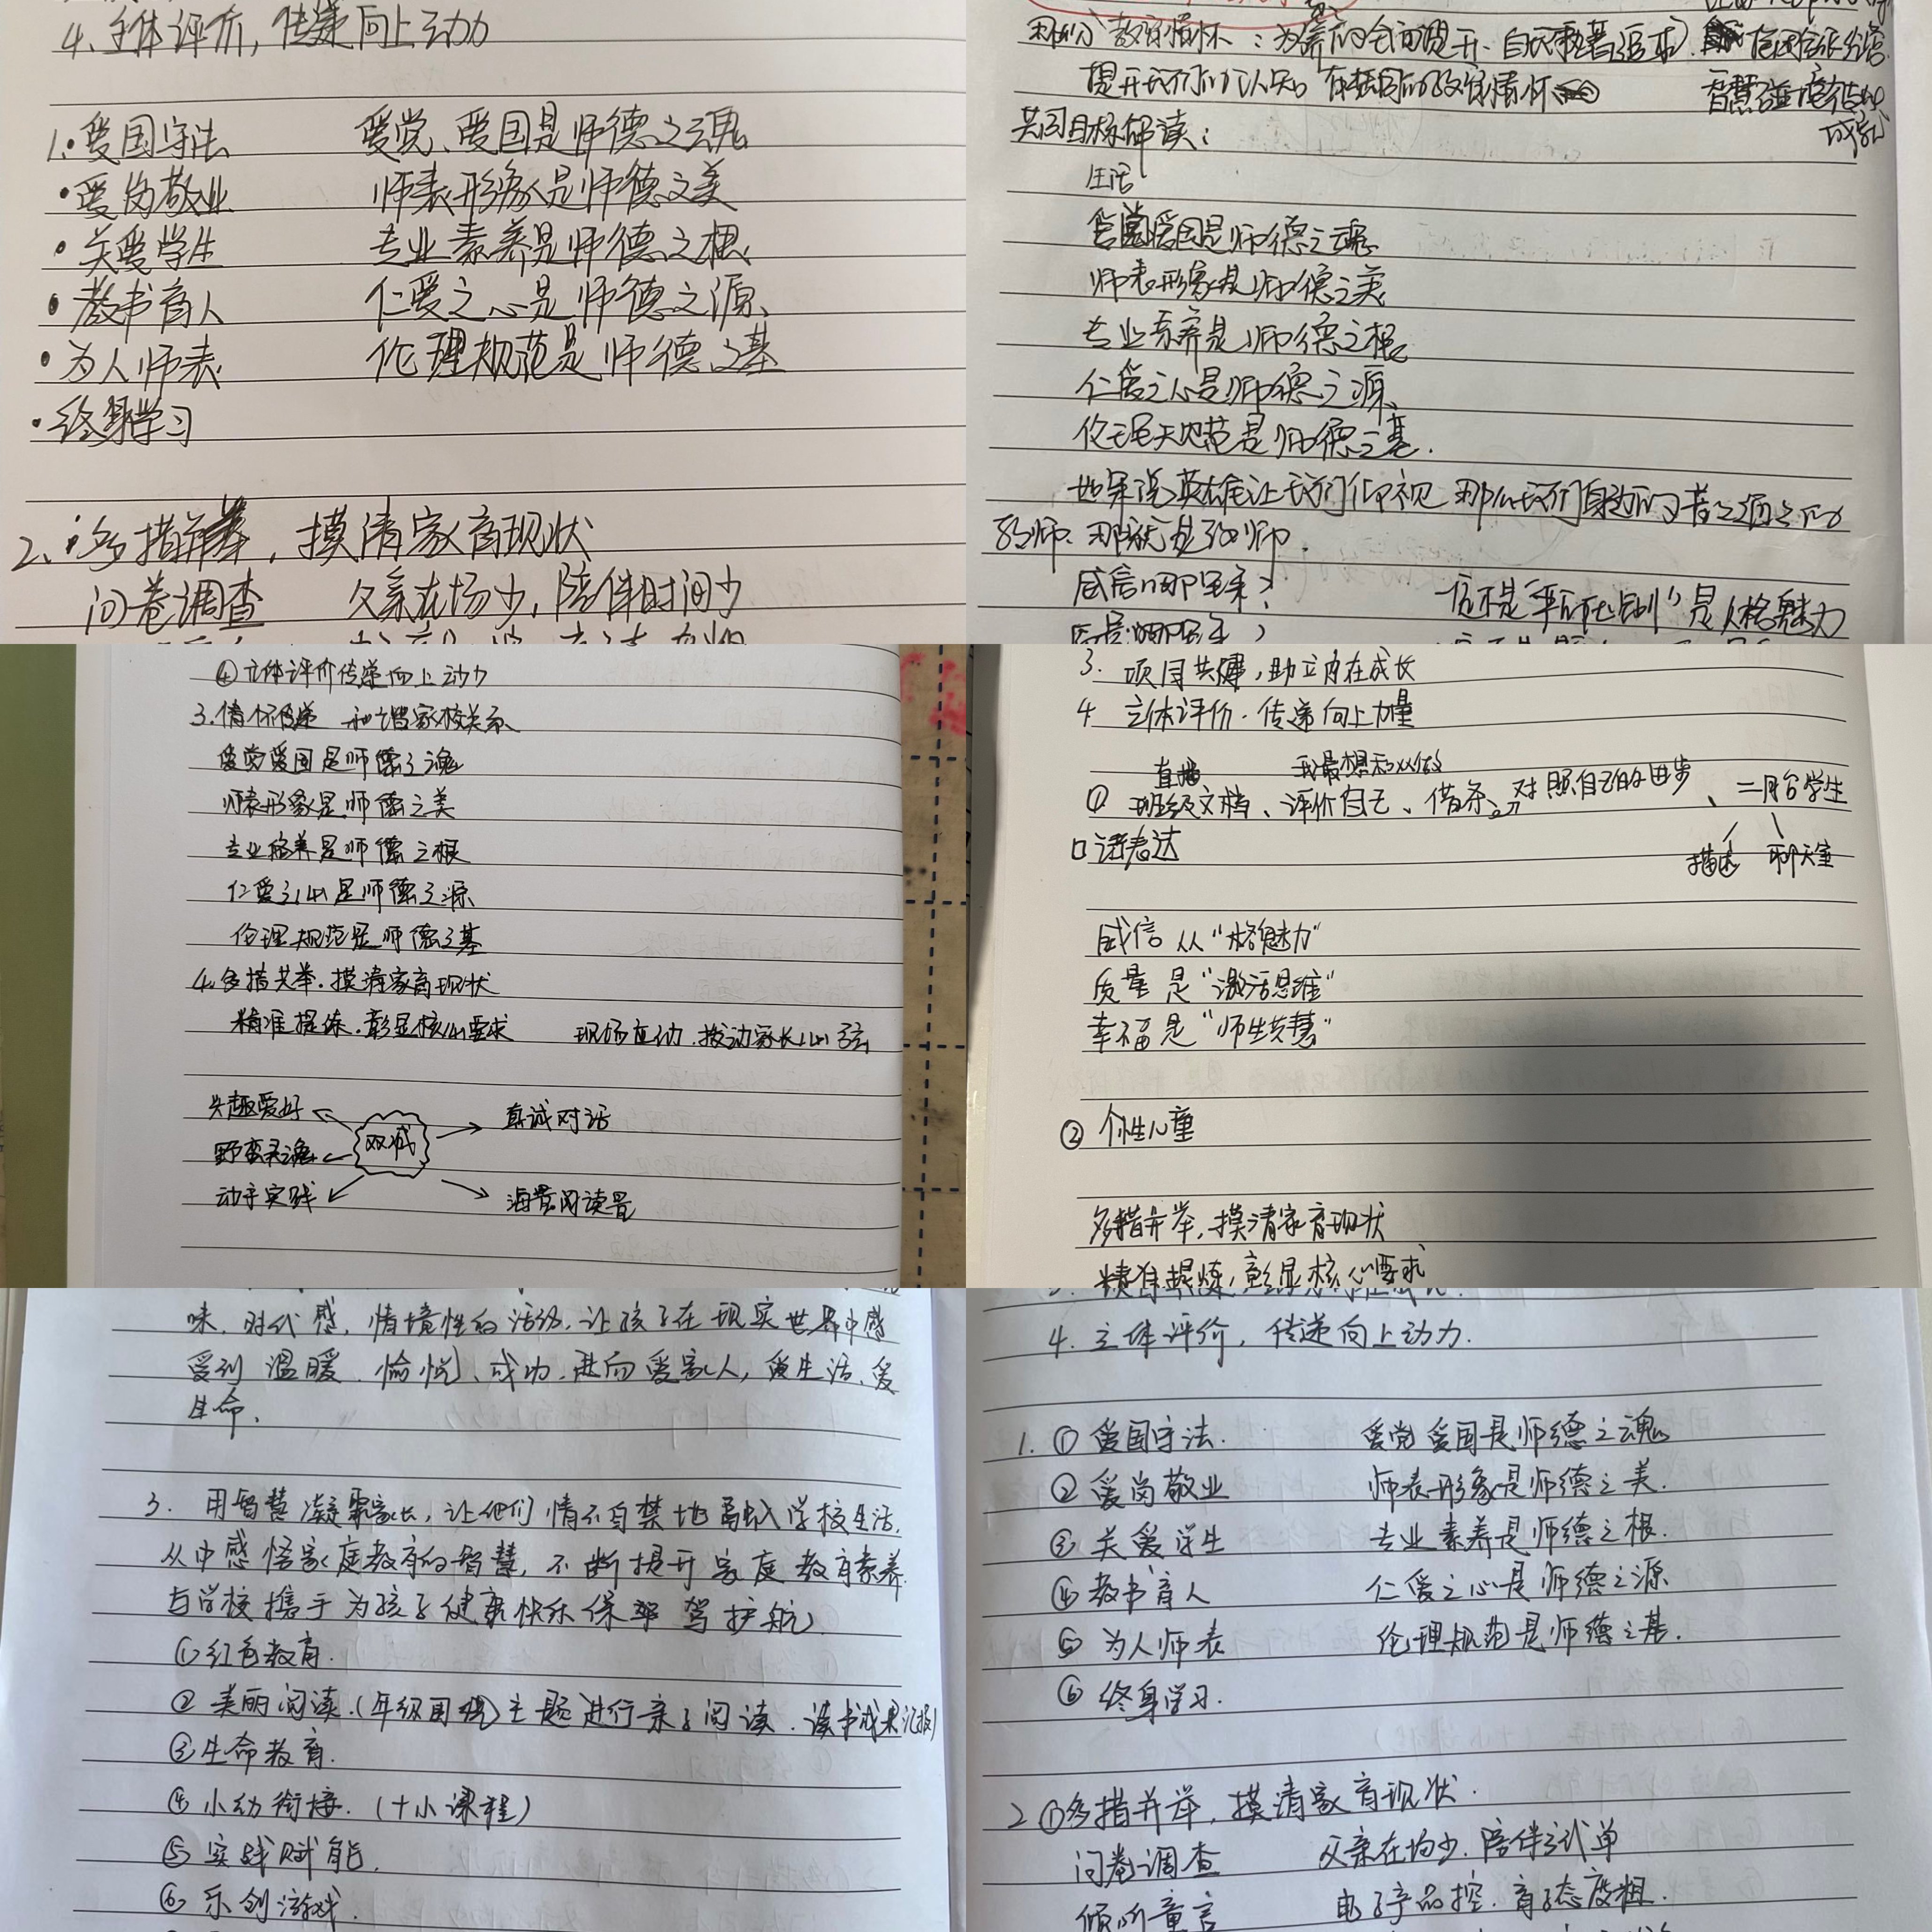 4、立体评价，传递向上动力
1.·爱国守法 爱党、爱国是师德之魂
·爱岗敬业 师表形象是师德之美
·关爱学生 专业素养是师德之根
·教书育人 仁爱之心是师德之源
·为人师表 伦理规范是师德之基
·终身学习
2.·多措并举，摸清家育现状
问卷调查 父亲在场少，陪伴时间少
教育情怀：
共同目标解读：
生活
爱国是师德之魂
师表形象是师德之美
专业素养是师德之根
仁爱之心是师德之源
伦理规范是师德之基.
如果说英雄让我们仰视 那么我们身边的
教师.
威信哪里来？
是人格魅力
④立体评价传递向上动力
3.情怀传递 和谐家校关系
爱党爱国是师德之魂
师表形象是师德之美
专业培养是师德之根
仁爱之心是师德之源
伦理规范是师德之基
4.多措共举.摸清家育现状
精准提炼.彰显核心要求 现场互动.拨动家长心弦
兴趣爱好 双减 真诚对话
野蛮灵魂
动手实践 海量阅读量
3. 项目共建，助立内在成长
4 立体评价.传递向上力量
直播 我最想和XX做
① 班级文档、评价自己、借条。对照自己的进步、二月台学生
口语表达 描述 聊天室
威信 从“格魅力”
质量是“激活思维”
幸福是“师生共慧”
② 个性儿童
多措并举，摸清家育现状
精准提炼，彰显核心要求
味，时代感，情境性的活动，让孩子在现实世界中感
受到温暖、愉悦、成功，走向爱家人，爱生活、爱
生命.
3. 用智慧凝聚家长，让他们情不自禁地融入学校生活，
从中感悟家庭教育的智慧，不断提升家庭教育素养
与学校携手为孩子健康快乐保驾护航
①红色教育.
②美丽阅读.(年级围绕主题进行亲子阅读.读书成果汇报)
③生命教育.
④小幼衔接.(十小课程)
⑤实践赋能.
⑥乐创游戏.
4. 立体评价，传递向上动力.
1. ①爱国守法. 爱党爱国是师德之魂
②爱岗敬业 师表形象是师德之美.
③关爱学生 专业素养是师德之根.
④教书育人 仁爱之心是师德之源
⑤为人师表 伦理规范是师德之基.
⑥终身学习.
2 ①多措并举，摸清家育现状.
问卷调查 父亲在场少.陪伴方式单
倾听童言 电子产品控.育子态度粗.